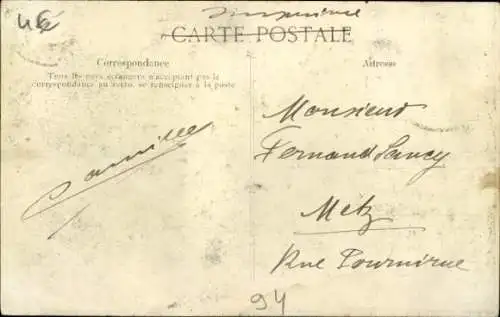 Imprimé
CARTE POSTALE
Correspondance
Tous les pays étrangers n'acceptent pas la
correspondance au recto, se renseigner à la poste
Adresse
Camille
Monsieur
Fernand
Metz
Rue
94